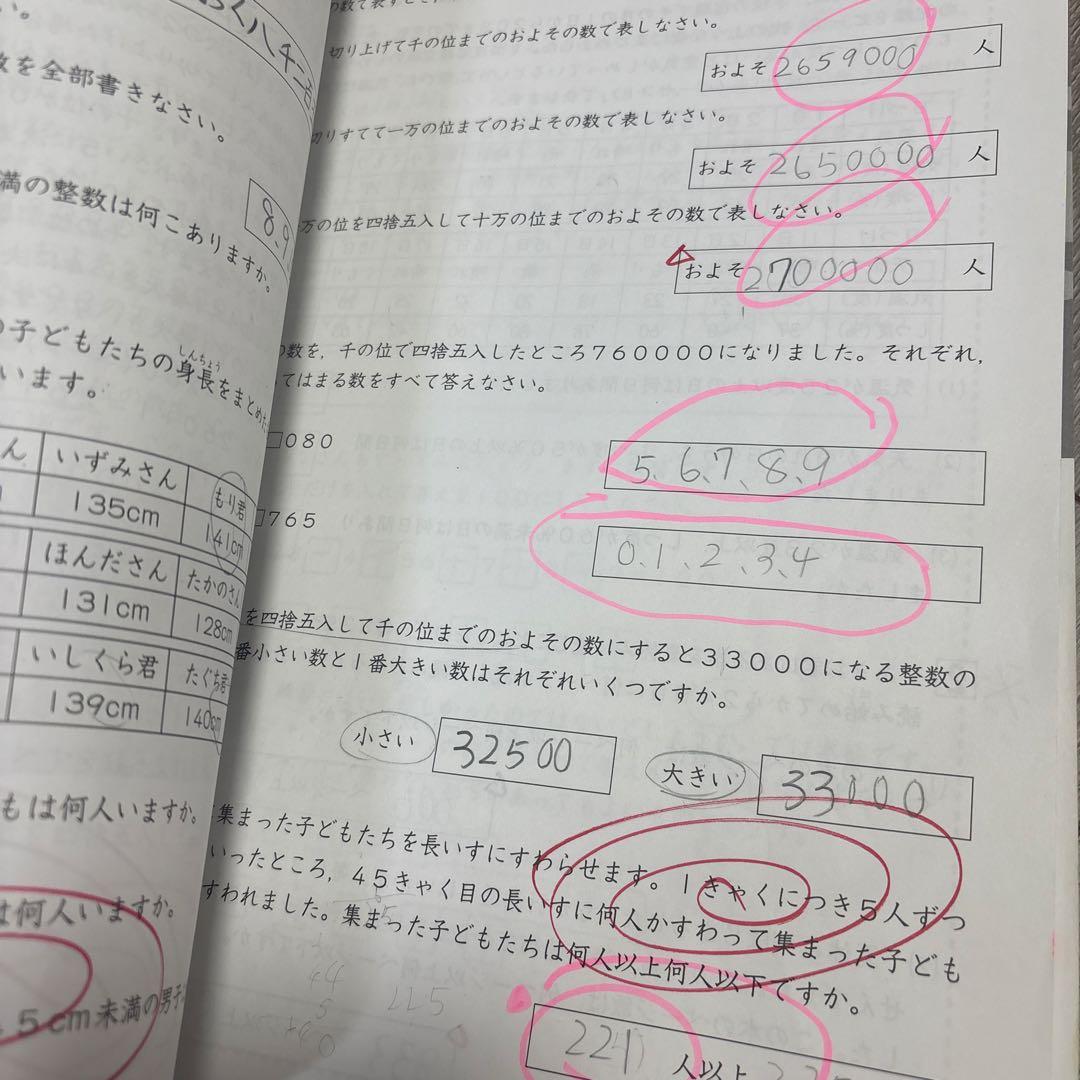 数を全部書きなさい。
満の整数は何こありますか。
8、9
の子どもたちの身長をまとめた
しんちょう
います。
いずみさん
もり君
135cm
141cm
ほんださん
たかのさん
131cm
128cm
いしくら君
たぐち君
139cm
140cm
もは何人いますか。
は何人いますか。
5cm未満の男子
切り上げて千の位までのおよその数で表しなさい。
およそ2659000人
切りすてて一万の位までのおよその数で表しなさい。
およそ2650000人
万の位を四捨五入して十万の位までのおよその数で表しなさい。
およそ2700000人
の数を，千の位で四捨五入したところ760000になりました。それぞれ，
てはまる数をすべて答えなさい。
□080
5、6、7、8、9
□765
0、1、2、3、4
を四捨五入して千の位までのおよその数にすると33000になる整数の
番小さい数と1番大きい数はそれぞれいくつですか。
小さい 32500
大きい 33000
集まった子どもたちを長いすにすわらせます。1きゃくにつき5人ずつ
いったところ，45きゃく目の長いすに何人かすわって集まった子ども
すわれました。集まった子どもたちは何人以上何人以下ですか。
44
5
225
221 人以上